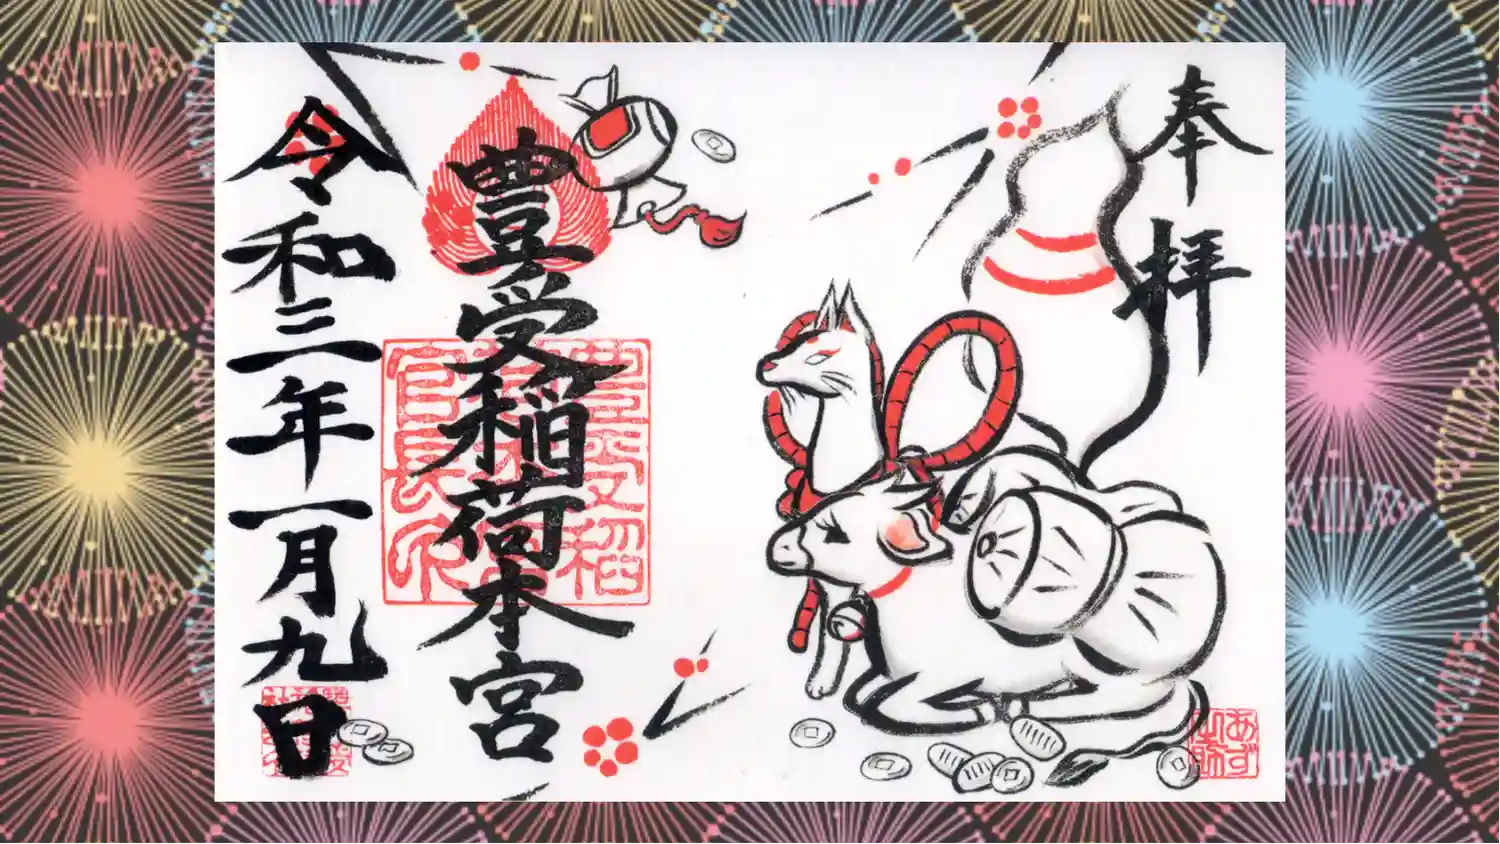 奉拝
豊受稲荷本宮
令和三年一月九日